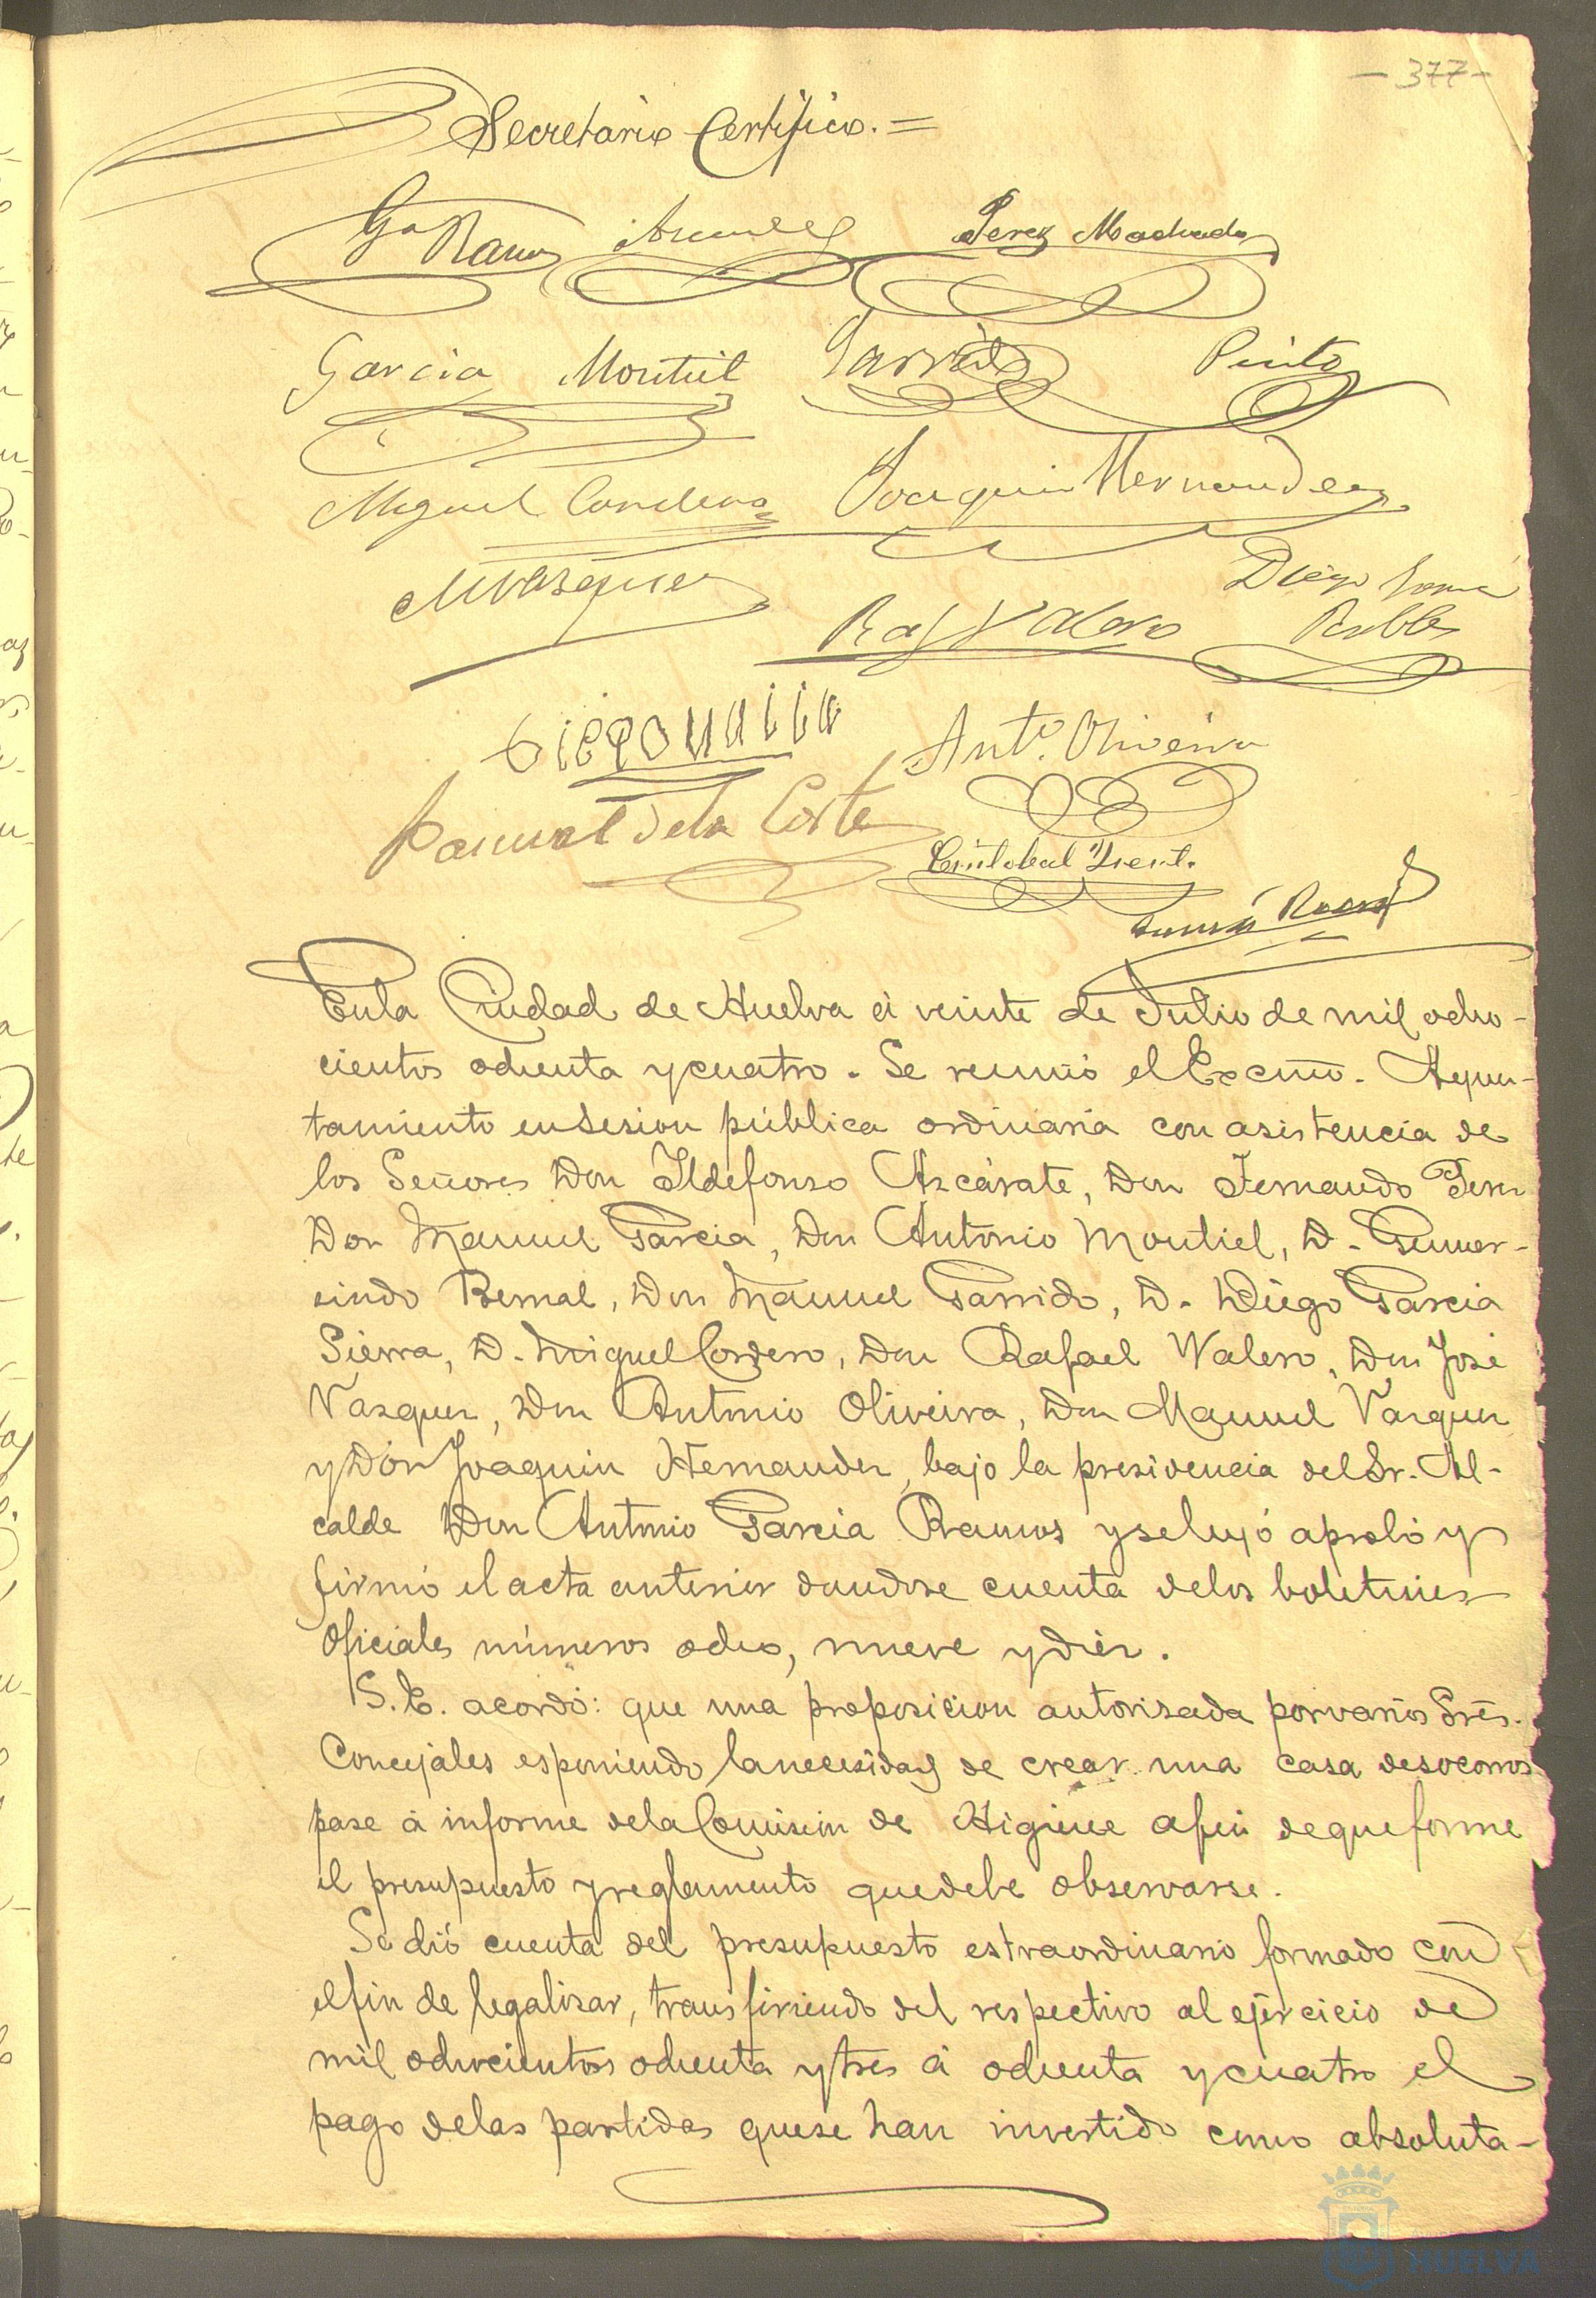 - 377 -
Secretario Certifico. =
Ga Ramos Perez Machado
Garcia Montiel Garrido Pinto
Miguel Cordero Joaquin Hernandez
MVazquez Diego Garcia
Raf Valero Robles
Anto. Oliveira
Manuel de la Corte
Cristobal
En la Ciudad de Huelva á veinte de Julio de mil ocho-
cientos ochenta y cuatro. Se reunió el Excmo. Ayun-
tamiento en Sesion pública ordinaria con asistencia de
los Señores Don Ildefonso Azcárate, Don Fernando Perez
Don Manuel Garcia, Don Antonio Montiel, D. Gumer-
sindo Bernal, Don Manuel Garrido, D. Diego Garcia
Sierra, D. Miguel Cordero, Don Rafael Walero, Don José
Vazquez, Don Antonio Oliveira, Don Manuel Vazquez
y Don Joaquin Hernandez, bajo la presidencia del Sr. Al-
calde Don Antonio Garcia Ramos y se leyó aprobó y
firmó el acta anterior dandose cuenta de los boletines
oficiales números ocho, nueve y diez.
S. E. acordó: que una proposicion autorizada por varios Sres.
Concejales esponiendo la necesidad de crear una casa de socorros
pase á informe de la Comision de Higiene a fin de que forme
el presupuesto y reglamento que debe observarse.
Se dió cuenta del presupuesto estraordinario formado con
el fin de legalizar, transfiriendo del respectivo al ejercicio de
mil ochocientos ochenta y tres á ochenta y cuatro el
pago de las partidas que se han invertido como absoluta-
HUELVA